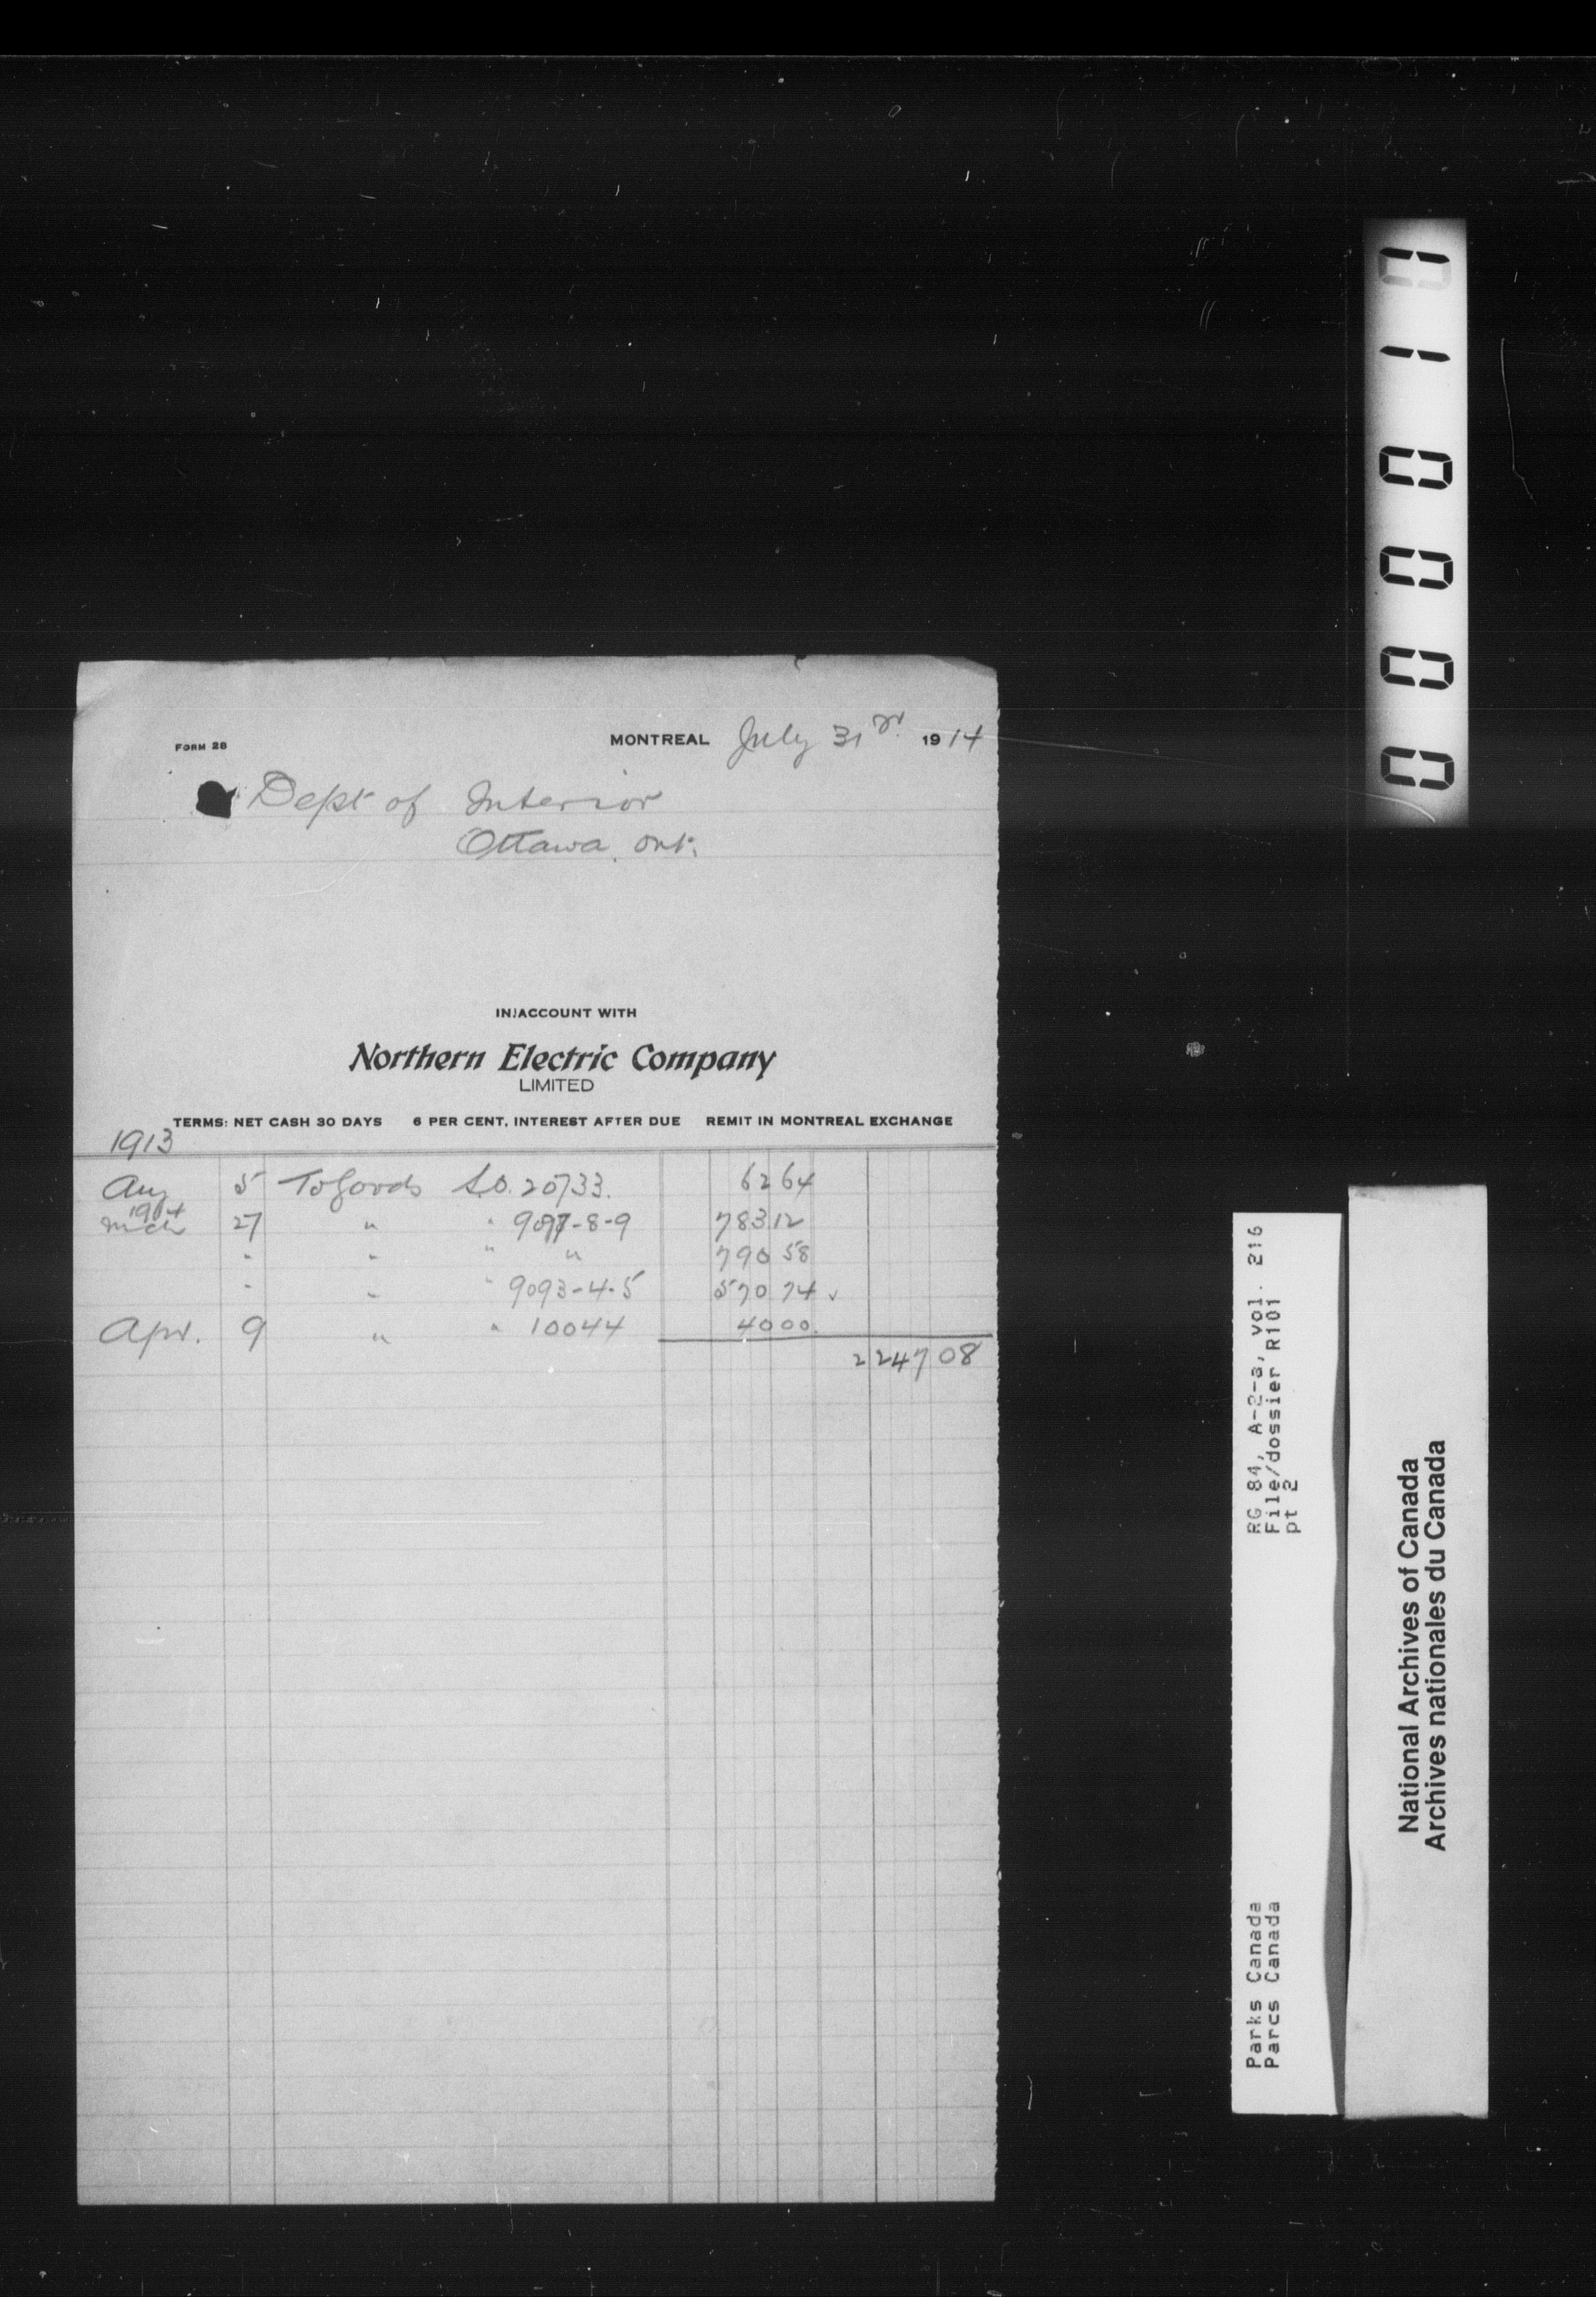 FORM 28
MONTREAL July 31st 1914
Dept of Interior
Ottawa, Ont.
IN ACCOUNT WITH
Northern Electric Company
LIMITED
TERMS: NET CASH 30 DAYS 6 PER CENT. INTEREST AFTER DUE REMIT IN MONTREAL EXCHANGE
1913
Aug 5 To Goods S.O. 20733. 62 64
1914
Mch 27 " " 9097-8-9 783 12
" " " " 790 58
" " " 9093-4-5 570 74 ✓
Apr. 9 " " 10044 40 00
2247 08
000010
RG 84, A-2-a, vol. 216
File/dossier R101
pt 2
Parks Canada
Parcs Canada
National Archives of Canada
Archives nationales du Canada